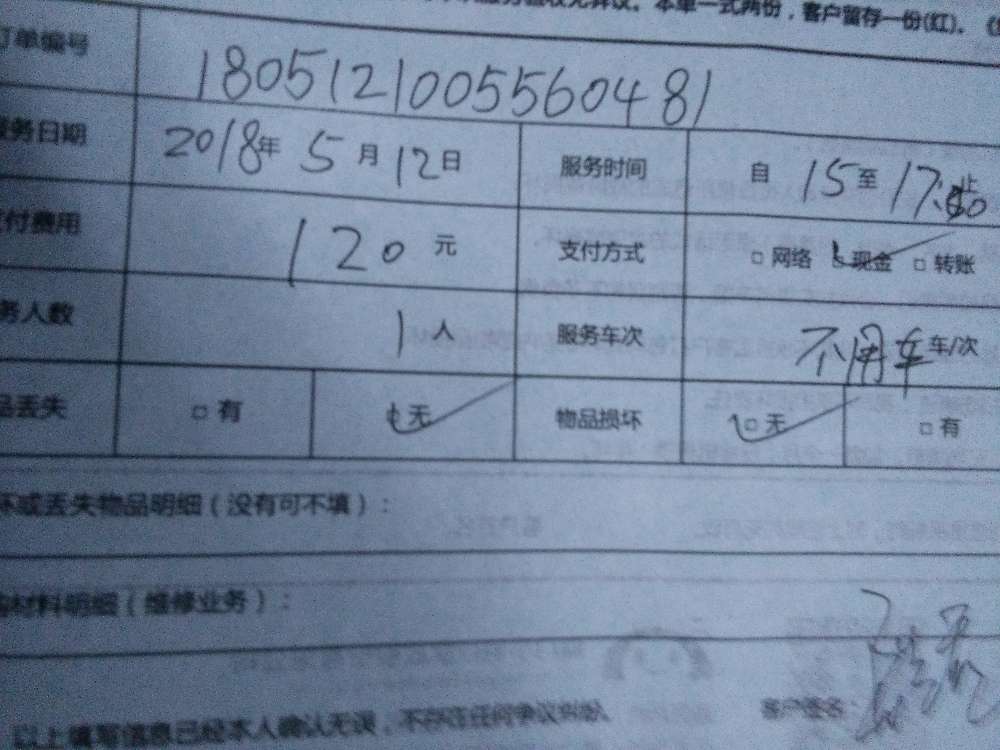 服务验收无异议。本单一式两份，客户留存一份(红)。
订单编号 1805121005560481
服务日期 2018年 5月12日 服务时间 自 15至17:00止
支付费用 120元 支付方式 □ 网络 □ 现金 □ 转账
务人数 1人 服务车次 不用车 车/次
品丢失 □ 有 □ 无 物品损坏 □ 无 □ 有
坏或丢失物品明细（没有可不填）：
材料明细（维修业务）：
以上填写信息已经本人确认无误，不存在任何争议 客户签名：